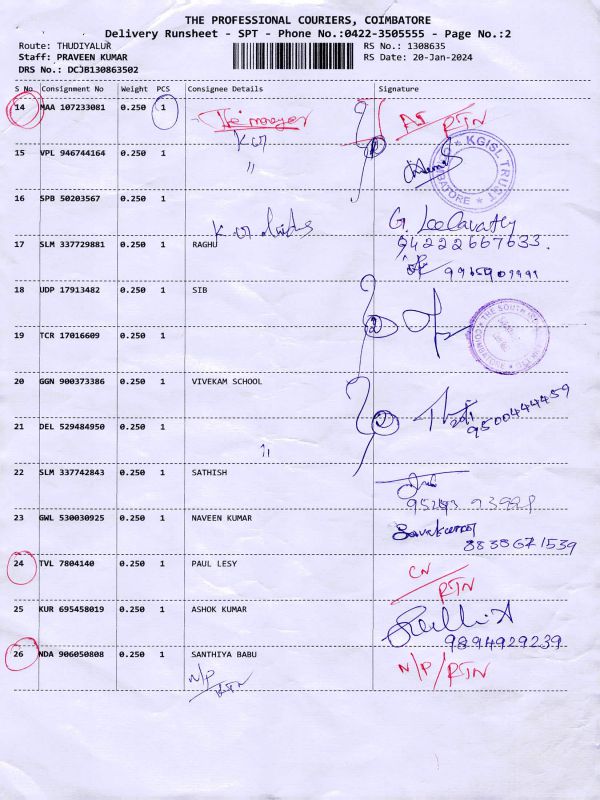 THE PROFESSIONAL COURIERS, COIMBATORE
Delivery Runsheet - SPT - Phone No.:0422-3505555 - Page No.:2
Route: THUDIYALUR
Staff: PRAVEEN KUMAR
DRS No.: DCJB130863502
RS No.: 1308635
RS Date: 20-Jan-2024
S No Consignment No Weight PCS Consignee Details Signature
14 MAA 107233081 0.250 1 RTN
15 VPL 946744164 0.250 1 "
KGISL TRUST
16 SPB 50203567 0.250 1
94222667633.
17 SLM 337729881 0.250 1 RAGHU
9965909999
18 UDP 17913482 0.250 1 SIB
2
THE SOUTH
COIMBATORE
19 TCR 17016609 0.250 1
20 GGN 900373386 0.250 1 VIVEKAM SCHOOL
2
9500444459
21 DEL 529484950 0.250 1 "
22 SLM 337742843 0.250 1 SATHISH
23 GWL 530030925 0.250 1 NAVEEN KUMAR
8838671539
24 TVL 7804140 0.250 1 PAUL LESY CN/RTN
25 KUR 695458019 0.250 1 ASHOK KUMAR
9894929239
26 NDA 906050808 0.250 1 SANTHIYA BABU N/P/RTN
N/P
RTN